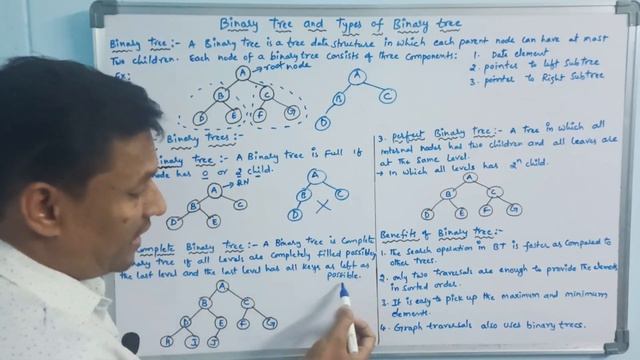 Binary Tree and Types of Binary tree
Binary Tree:- A Binary Tree is a tree data structure in which each parent node can have at most
Two children. Each node of a binary tree consists of three components:
1. Data element
2. pointer to left subtree
3. pointer to Right subtree
Ex:
A → root node
B C
D E F G
A
B C
D
Binary Trees
Binary Tree:- A Binary Tree is Full if
node has 0 or 2 child.
A → RN
B C
D E
A
B C
D
Complete Binary Tree:- A Binary Tree is Complete
Binary Tree if all levels are completely filled possibly
the last level and the last level has all keys as left as
possible.
A
B C
D E F G
H I J
3. perfect Binary Tree:- A Tree in which all
internal nodes has two children and all leaves are
at the Same level.
→ In which all levels has 2ⁿ child.
A
B C
D E F G
Benefits of Binary Tree:-
1. The search operation in BT is faster as compared to
other trees.
2. only two traversals are enough to provide the elements
in sorted order.
3. It is easy to pick up the maximum and minimum
elements.
4. Graph traversals also uses binary trees.